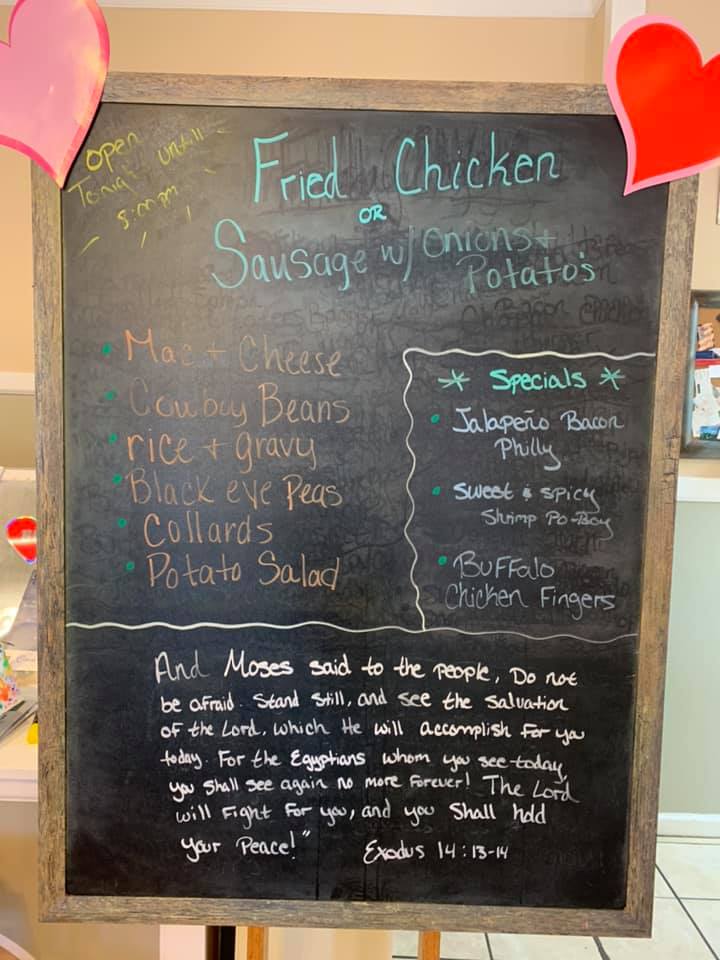 open
Tonight untill
8:00pm
Fried Chicken
OR
Sausage w/ onions +
Potato's
• Mac + Cheese
• Cowboy Beans
• rice + gravy
• Black eye Peas
• Collards
• Potato Salad
* Specials *
• Jalapeño Bacon
Philly
• Sweet & spicy
Shrimp Po-Boy
• Buffalo
Chicken Fingers
And Moses said to the people, Do not
be afraid. Stand Still, and see the salvation
of the Lord, which He will accomplish for you
today. For the Egyptians whom you see today,
you shall see again no more forever! The Lord
will Fight for you, and you Shall hold
your Peace!"
Exodus 14:13-14